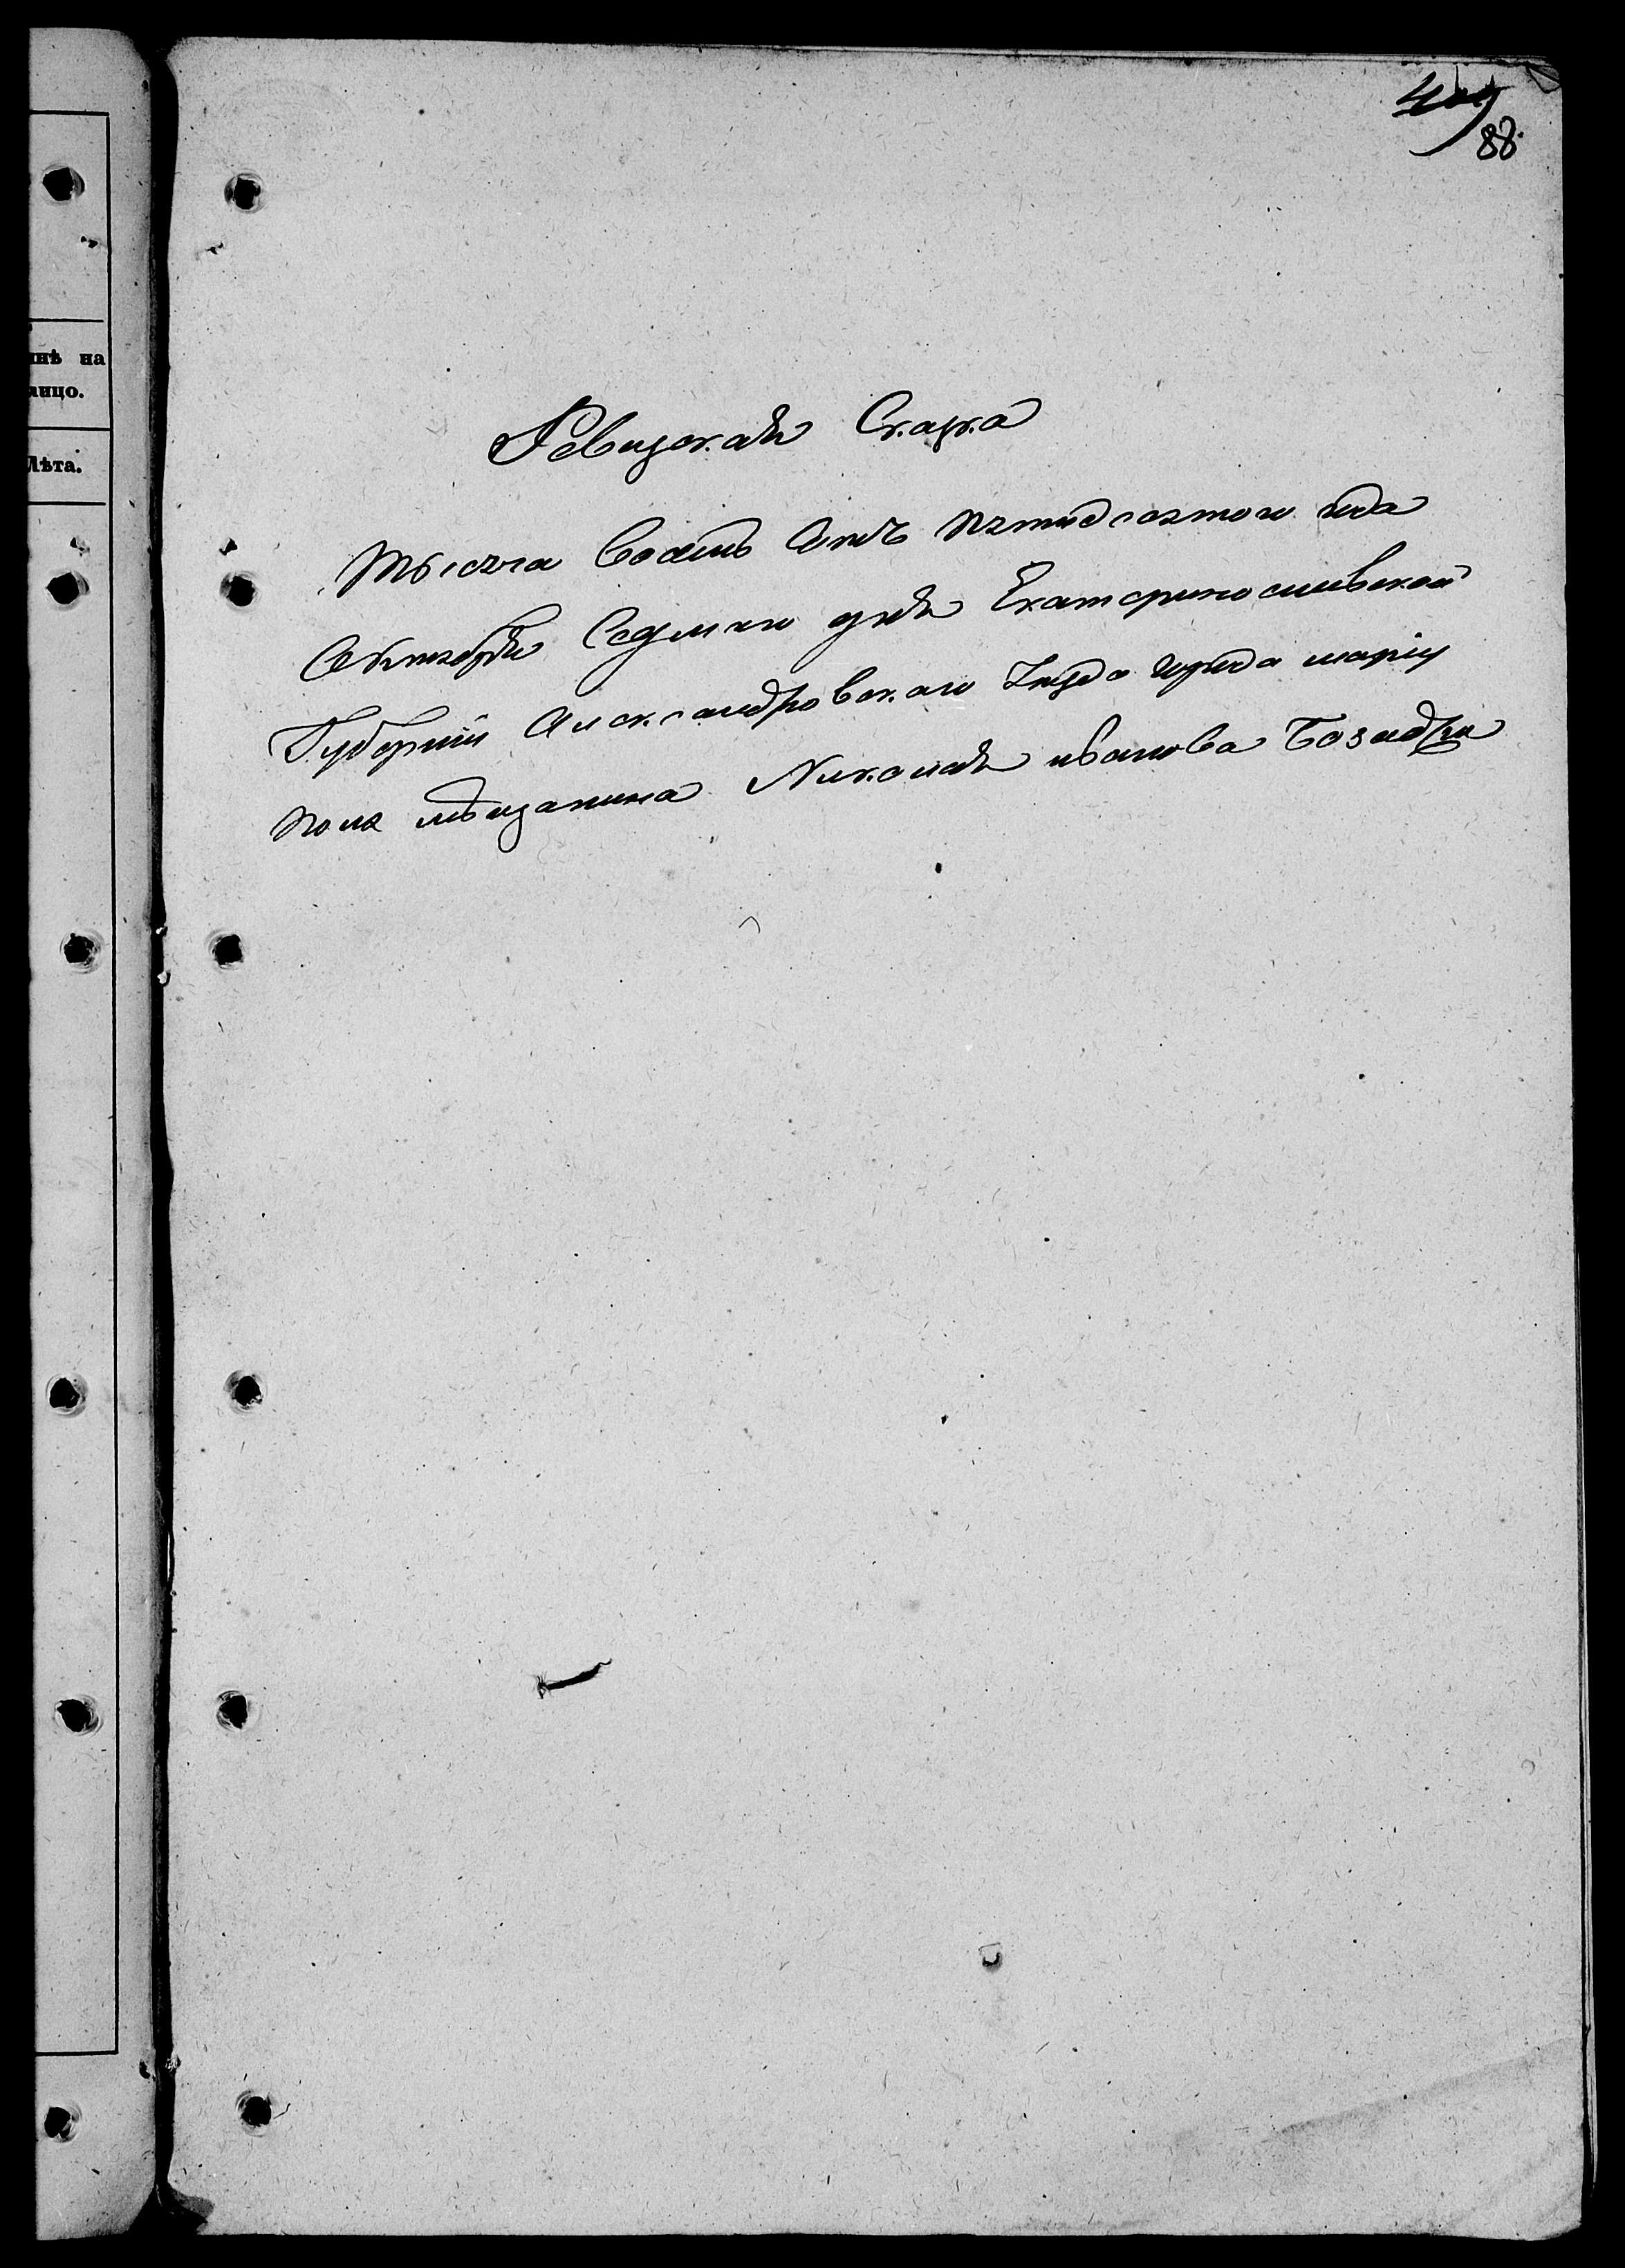 409
88.
инѣ на
лицо.
Лѣта.
Ревизская Скаска
Тысяча Восемь Сотъ пятидесятого года
Октября Седмаго дня Екатеринославской
Губернии Александровского Уезда города марiу
поля мещанина Николая иванова